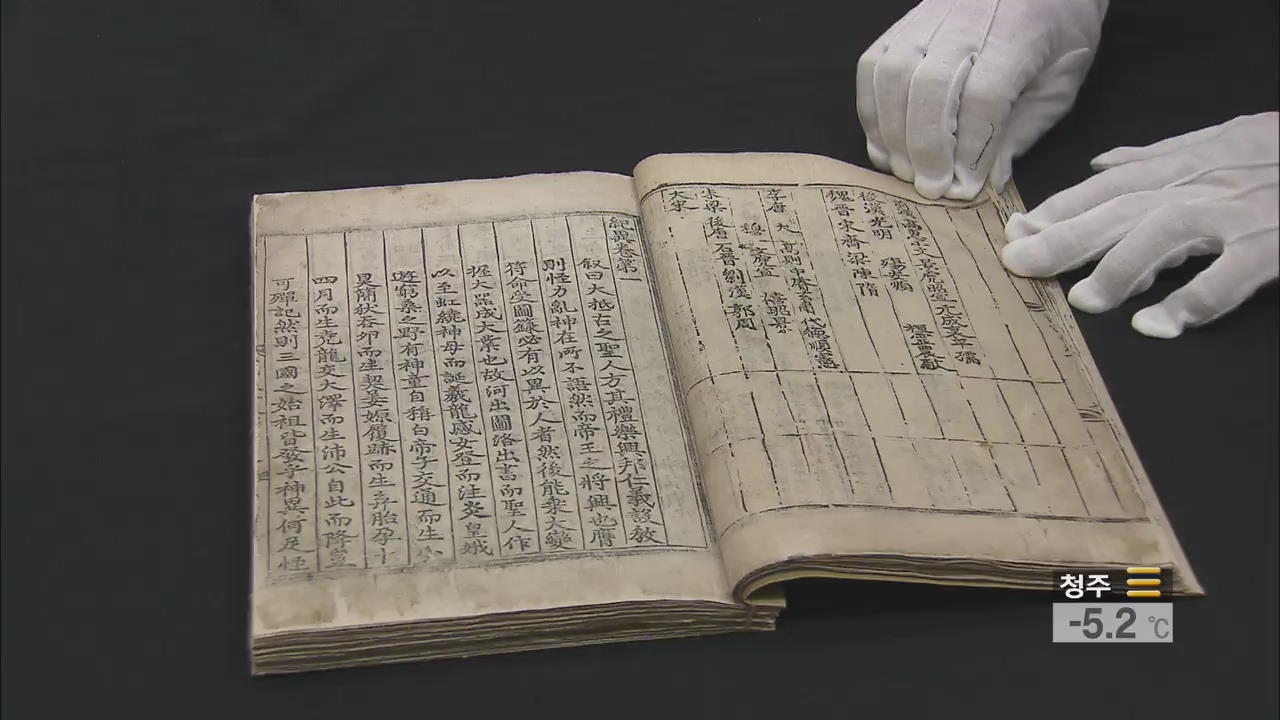 後漢光明
魏晉宋齊梁陳隋
李唐 太 高則中睿玄肅代德順憲
朱梁後唐石晉劉漢郭周
大宋
紀異卷第一
叙曰大抵古之聖人方其禮樂興邦仁義設教
則怪力亂神在所不語然而帝王之將興也膺
符命受圖籙必有以異於人者然後能乘大變
握大器成大業也故河出圖洛出書而聖人作
以至虹繞神母而誕羲龍感女登而注炎皇娥
遊窮桑之野有神童自稱白帝子交通而生小
昊簡狄呑卵而生契姜嫄履跡而生弃胎孕十
四月而生堯龍交大澤而生沛公自此而降豈
可殫記然則三國之始祖皆發乎神異何足怪
청주
-5.2 ℃